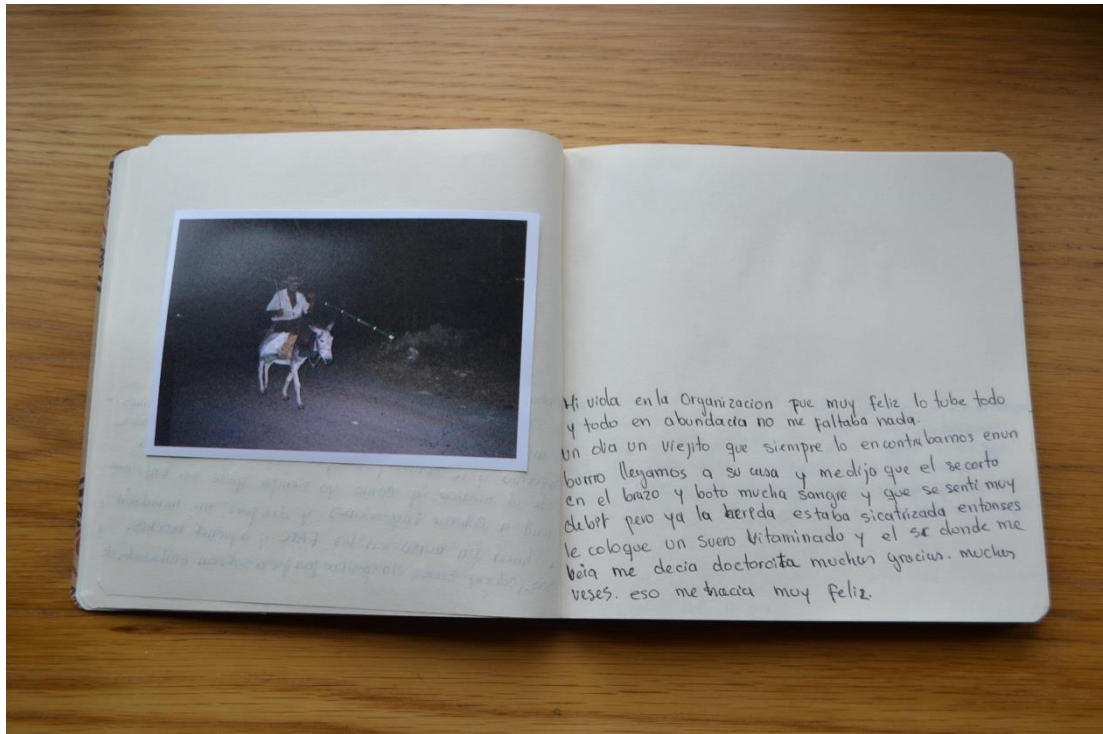 Mi vida en la Organizacion pue muy feliz lo tube todo
y todo en abundacia no me faltaba nada.
un dia un viejito que siempre lo encontrabamos enun
burro llegamos a su casa y medijo que el secorto
en el brazo y boto mucha sangre y que se senti muy
debil pero ya la herida estaba sicatrizada entonses
le coloque un suero Vitaminado y el se donde me
beia me decia doctorcita muchas gracias. muchas
veses. eso me hacia muy feliz.